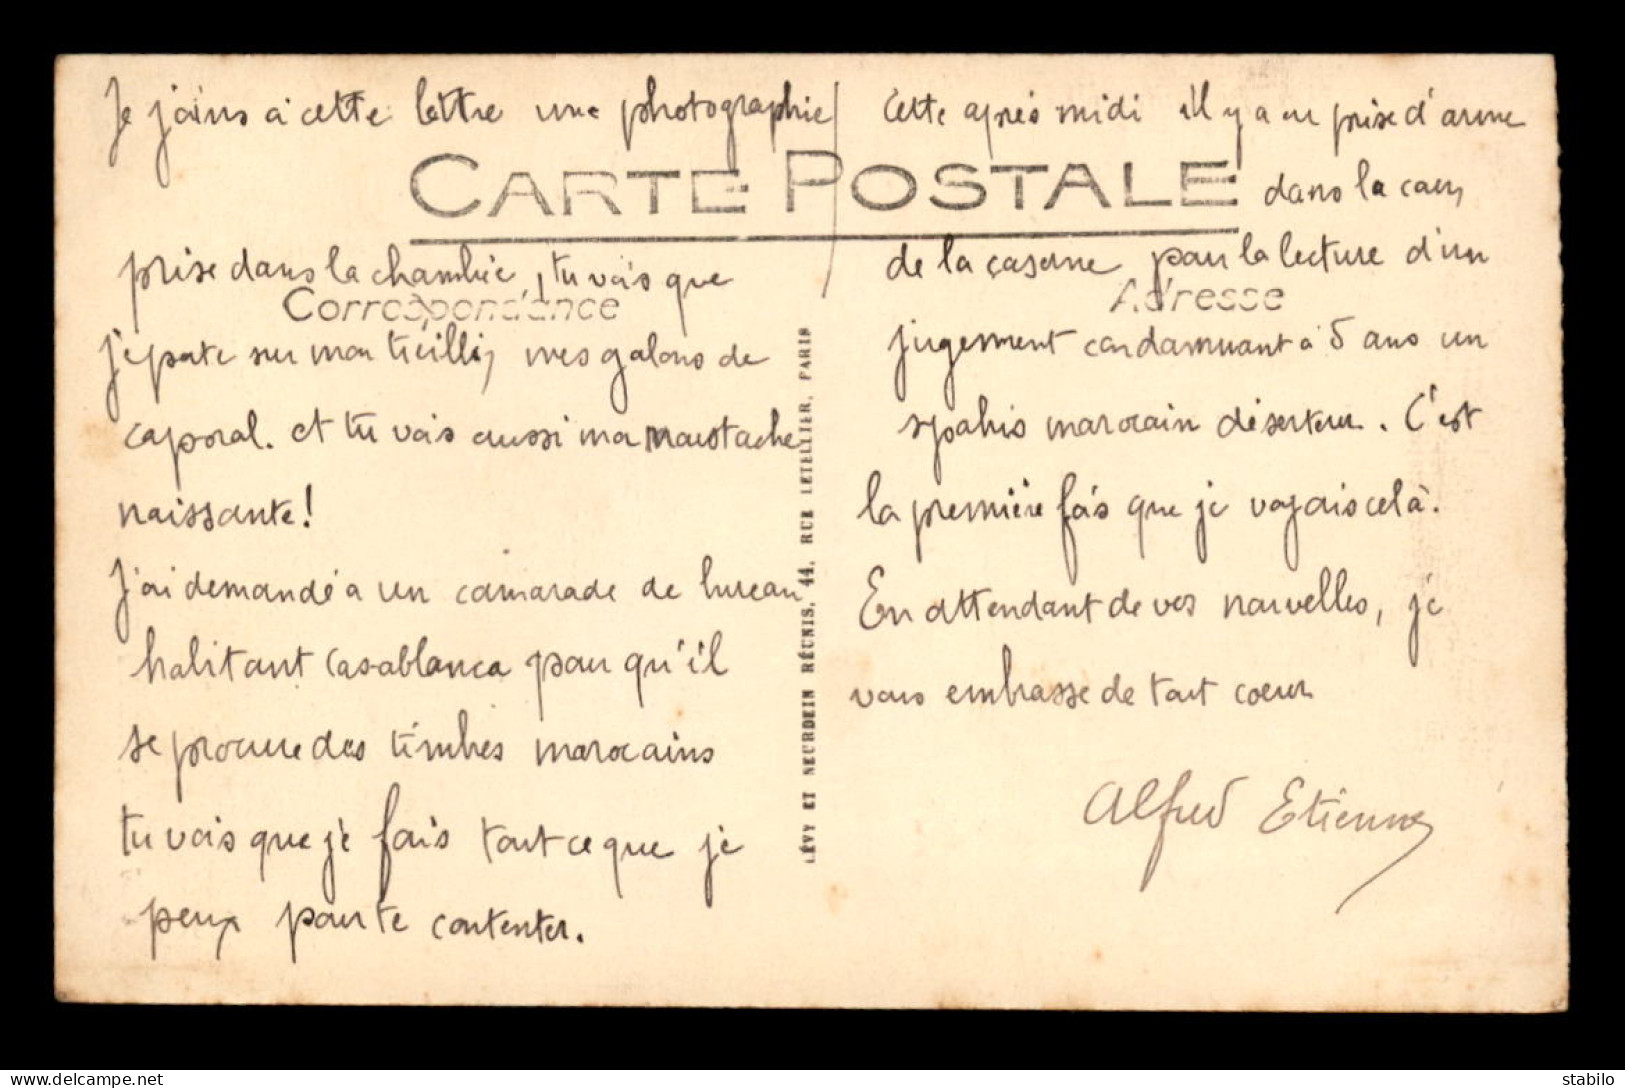 Je joins à cette lettre une photographie
CARTE POSTALE
prise dans la chambre, tu vois que
Correspondance
je porte sur mon treillis, mes galons de
caporal. et tu vois aussi ma moustache
naissante!
J'ai demandé a un camarade de bureau
habitant Casablanca pour qu'il
se procure des timbres marocains
tu vois que je fais tout ce que je
peux pour te contenter.
LÉVY ET NEURDEIN RÉUNIS, 44, RUE LETELLIER, PARIS
Cette après midi il y a eu prise d'arme
dans la cour
de la caserne pour la lecture d'un
Adresse
jugement condamnant a 5 ans un
spahis marocain déserteur. C'est
la première fois que je voyais celà.
En attendant de vos nouvelles, je
vous embrasse de tout coeur
Alfred Etienne
stabilo
https://www.delcampe.net